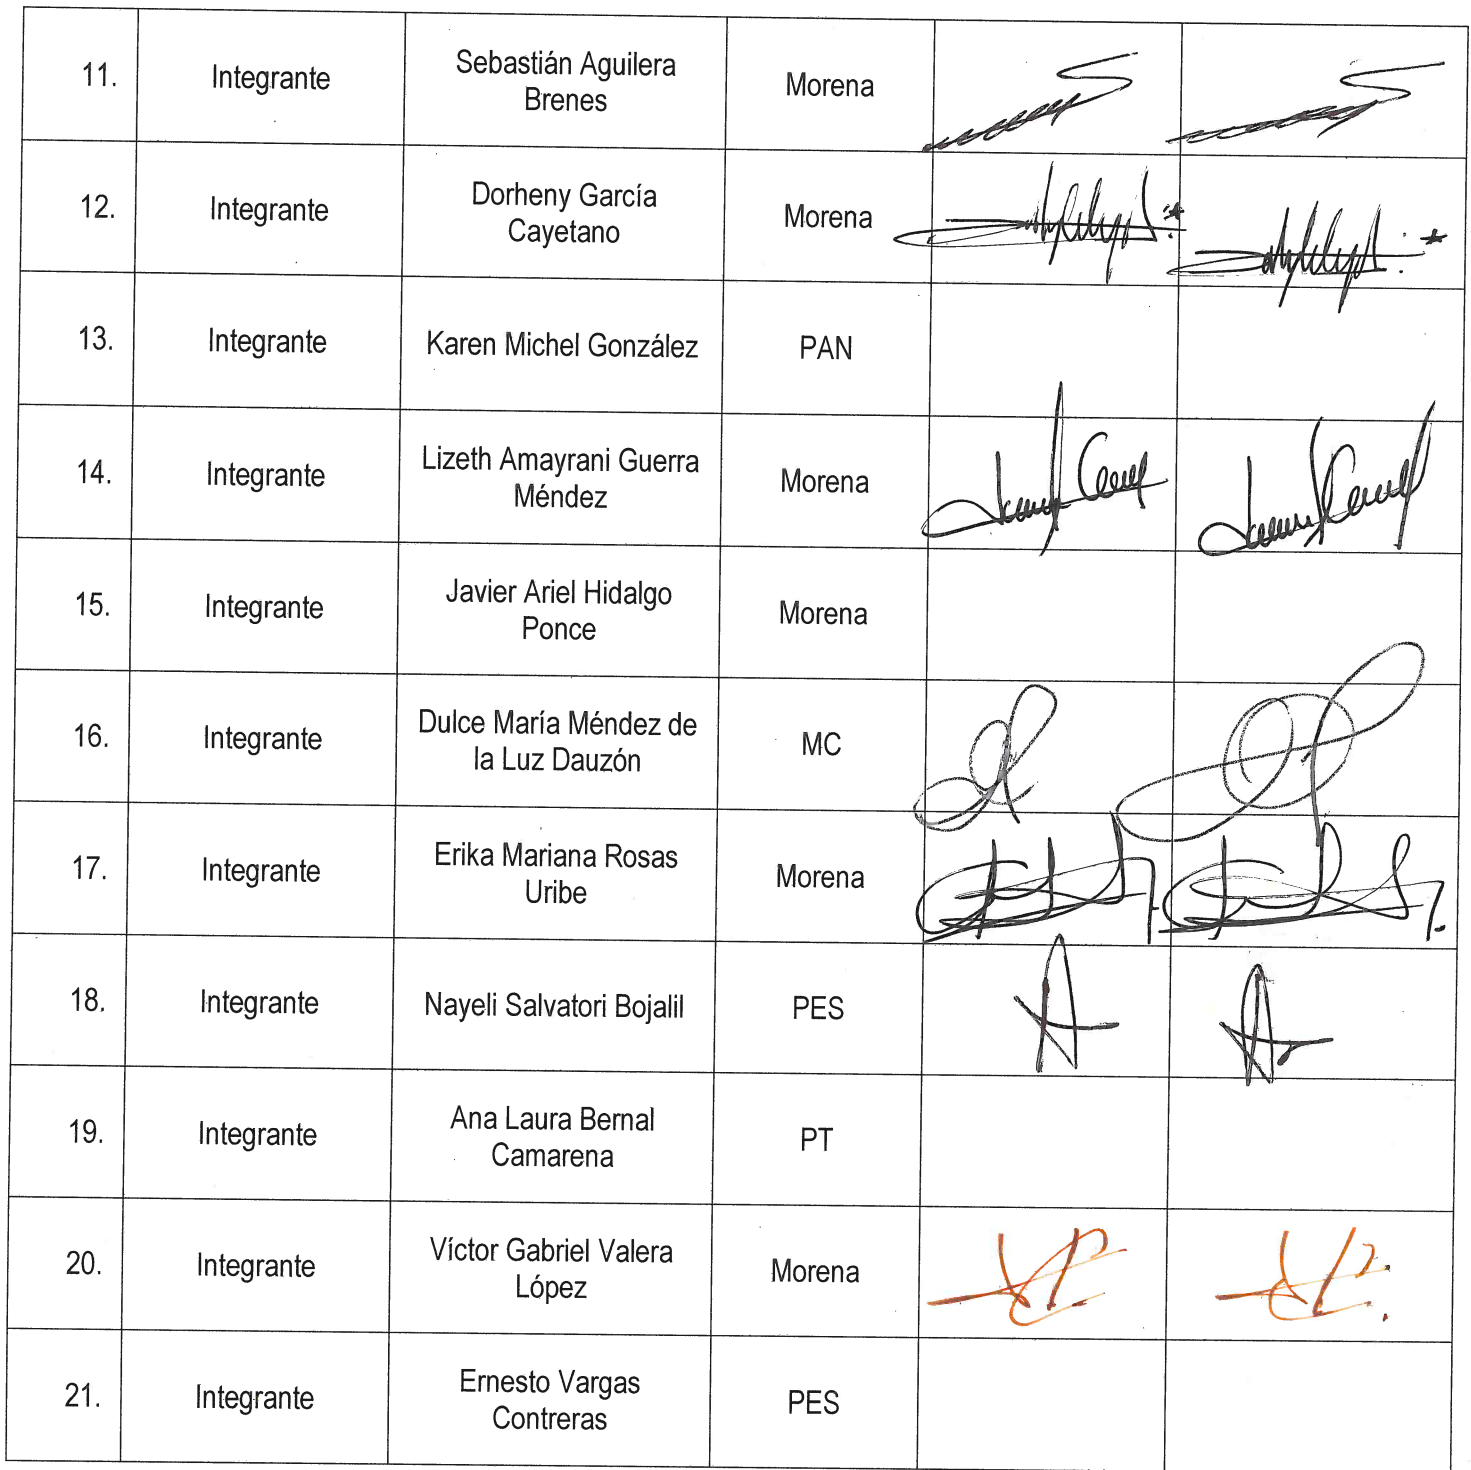 11. Integrante Sebastián Aguilera Morena
Brenes
12. Integrante Dorheny García Morena
Cayetano
13. Integrante Karen Michel González PAN
14. Integrante Lizeth Amayrani Guerra Morena
Méndez
15. Integrante Javier Ariel Hidalgo Morena
Ponce
16. Integrante Dulce María Méndez de MC
la Luz Dauzón
17. Integrante Erika Mariana Rosas Morena
Uribe
18. Integrante Nayeli Salvatori Bojalil PES
19. Integrante Ana Laura Bernal PT
Camarena
20. Integrante Víctor Gabriel Valera Morena
López
21. Integrante Ernesto Vargas PES
Contreras